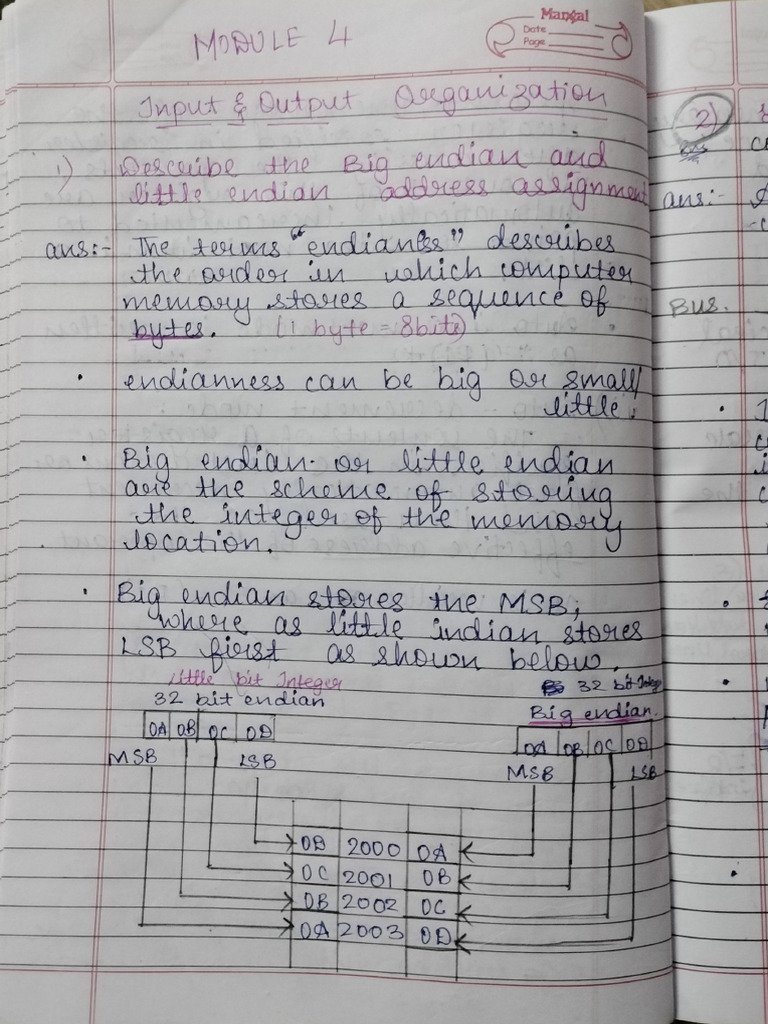 Mangal
Date
Page
MODULE 4
Input & Output Organization
1) Describe the Big endian and
little endian address assignment
ans:- The terms "endianess" describes
the order in which computer
memory stores a sequence of
bytes. (1 byte = 8bits)
• endianness can be big or small/
little.
• Big endian or little endian
are the scheme of storing
the integer of the memory
location.
• Big endian stores the MSB,
where as little indian stores
LSB first as shown below.
little bit Integer
32 bit endian
0A 0B 0C 0D
MSB LSB
32 bit Integ
Big endian.
0A 0B 0C 0D
MSB LSB
0D 2000 0A
0C 2001 0B
0B 2002 0C
0A 2003 0D
2)
ans:-
BUS.